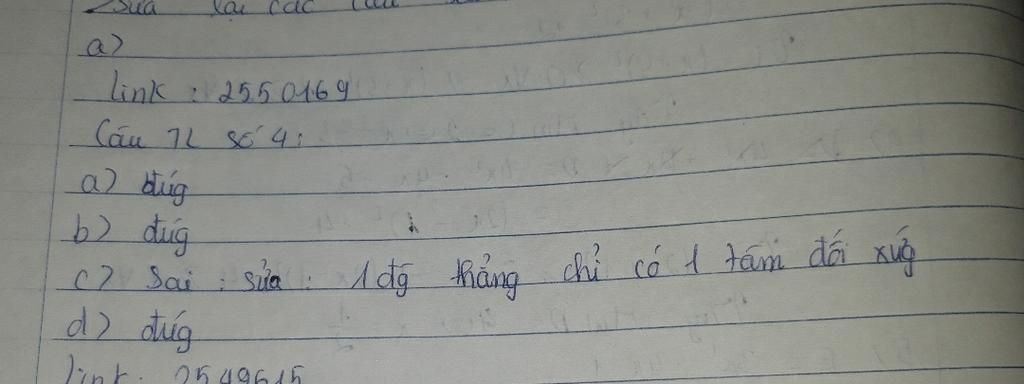 sửa lại các câu
a)
link : 2550169
Câu TL số 4:
a) đúg
b) đúg
c) Sai : sửa : 1 đg thẳng chỉ có 1 tâm đối xứg
d) đúg
link: 2549615